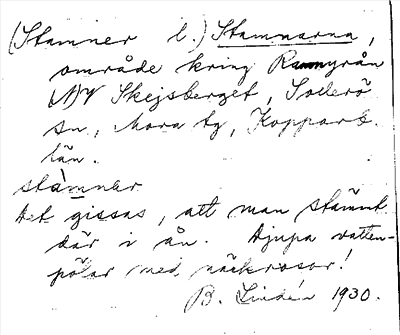 (Stamner l.) Stamnarna,
område kring Rammyrån
NV Skejsberget, Sollerö
sn., Mora tg, Kopparb.
län.
stàmnar
Det gissas, att man stämt
där i ån. Djupa vatten-
pölar med näckrosor!
B. Lindén 1930.